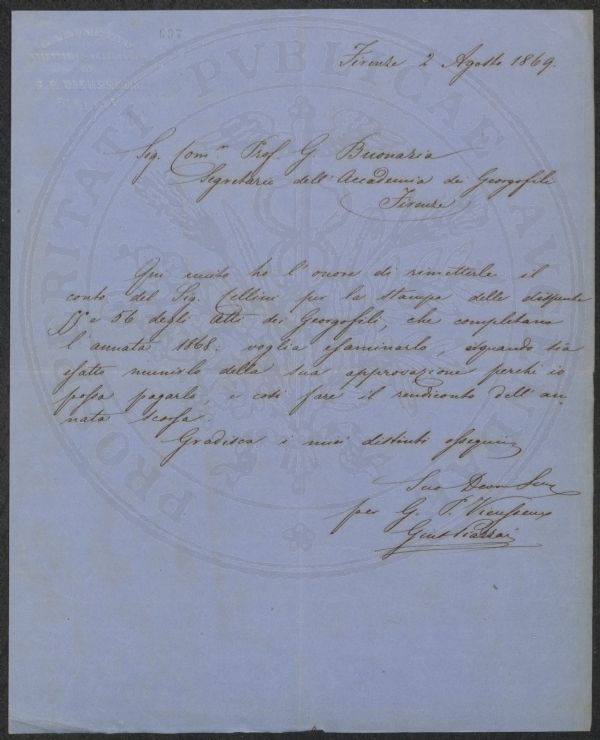 697
G. P. VIEUSSEUX
PROSPERITATI PVBLICAE AVGENDAE
Firenze 2 Agosto 1869.
Sig. Comm. Prof. G. Buonazia
Segretario dell'Accademia dei Georgofili
Firenze
Qui unito ho l'onore di rimetterle il
conto del Sig. Cellini per la stampa delle dispense
56 degli Atti dei Georgofili, che completano
l'annata 1868: voglia esaminarlo, e quando sia
esatto munirlo della sua approvazione perchè io
possa pagarlo e così fare il rendiconto dell'an
nata scorsa.
Gradisca i miei distinti ossequi
Suo Devmo Serv
per G. P. Vieusseux